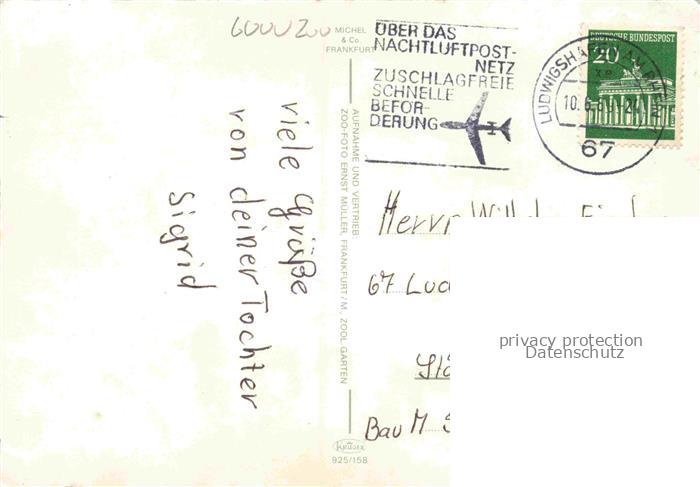 6000 Zoo
MICHEL
& Co.
FRANKFURT
ÜBER DAS
NACHTLUFTPOST-
NETZ
ZUSCHLAGFREIE
SCHNELLE
BEFÖR-
DERUNG
LUDWIGSHAFEN AM RHEIN
10.6.
67
DEUTSCHE BUNDESPOST
20
viele Grüße
von deiner Tochter
Sigrid
AUFNAHME UND VERTRIEB:
ZOO-FOTO ERNST MÜLLER, FRANKFURT/M., ZOOL. GARTEN
KRÜGER
925/158
Herrn
67
Bau M
privacy protection
Datenschutz